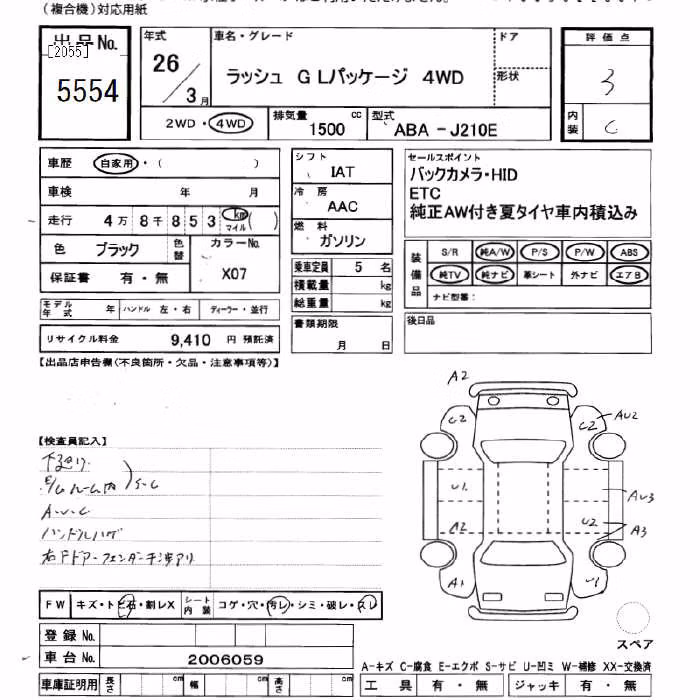 (複合機)対応用紙
出品No.
[2055]
5554
年式
26/3月
車名・グレード
ラッシュ GLパッケージ 4WD
ドア
形状
評価点
3
内装
C
2WD・4WD
排気量
1500 cc
型式
ABA-J210E
車歴 自家用・( )
車検 年 月
走行 4万8千853 km マイル ( )
色 ブラック
色替
カラーNo.
X07
保証書 有・無
モデル年式 年
ハンドル 左・右
ディーラー・並行
リサイクル料金 9,410 円 預託済
シフト
IAT
冷房
AAC
燃料
ガソリン
乗車定員 5 名
積載量 kg
総重量 kg
書類期限
月 日
セールスポイント
バックカメラ・HID
ETC
純正AW付き夏タイヤ車内積込み
装備品
S/R 純A/W P/S P/W ABS
純TV 純ナビ 革シート 外ナビ エアB
ナビ型番:
後日品
【出品店申告欄(不良箇所・欠品・注意事項等)】
【検査員記入】
下廻り
E/Gルーム内
S-C
A-U-C
ハンドルハゲ
右Fドアーフェンダー
アリ
A2
C2
C2
AU2
U1
AU3
A2
U2
A3
A1
U1
FW キズ・トビ石・割レX
シート内装 コゲ・穴・汚レ・シミ・破レ・スレ
登録No.
車台No. 2006059
車庫証明用 長さ cm 幅 cm 高さ cm
スペア
A-キズ C-腐食 E-エクボ S-サビ U-凹ミ W-補修 XX-交換済
工具 有・無 ジャッキ 有・無